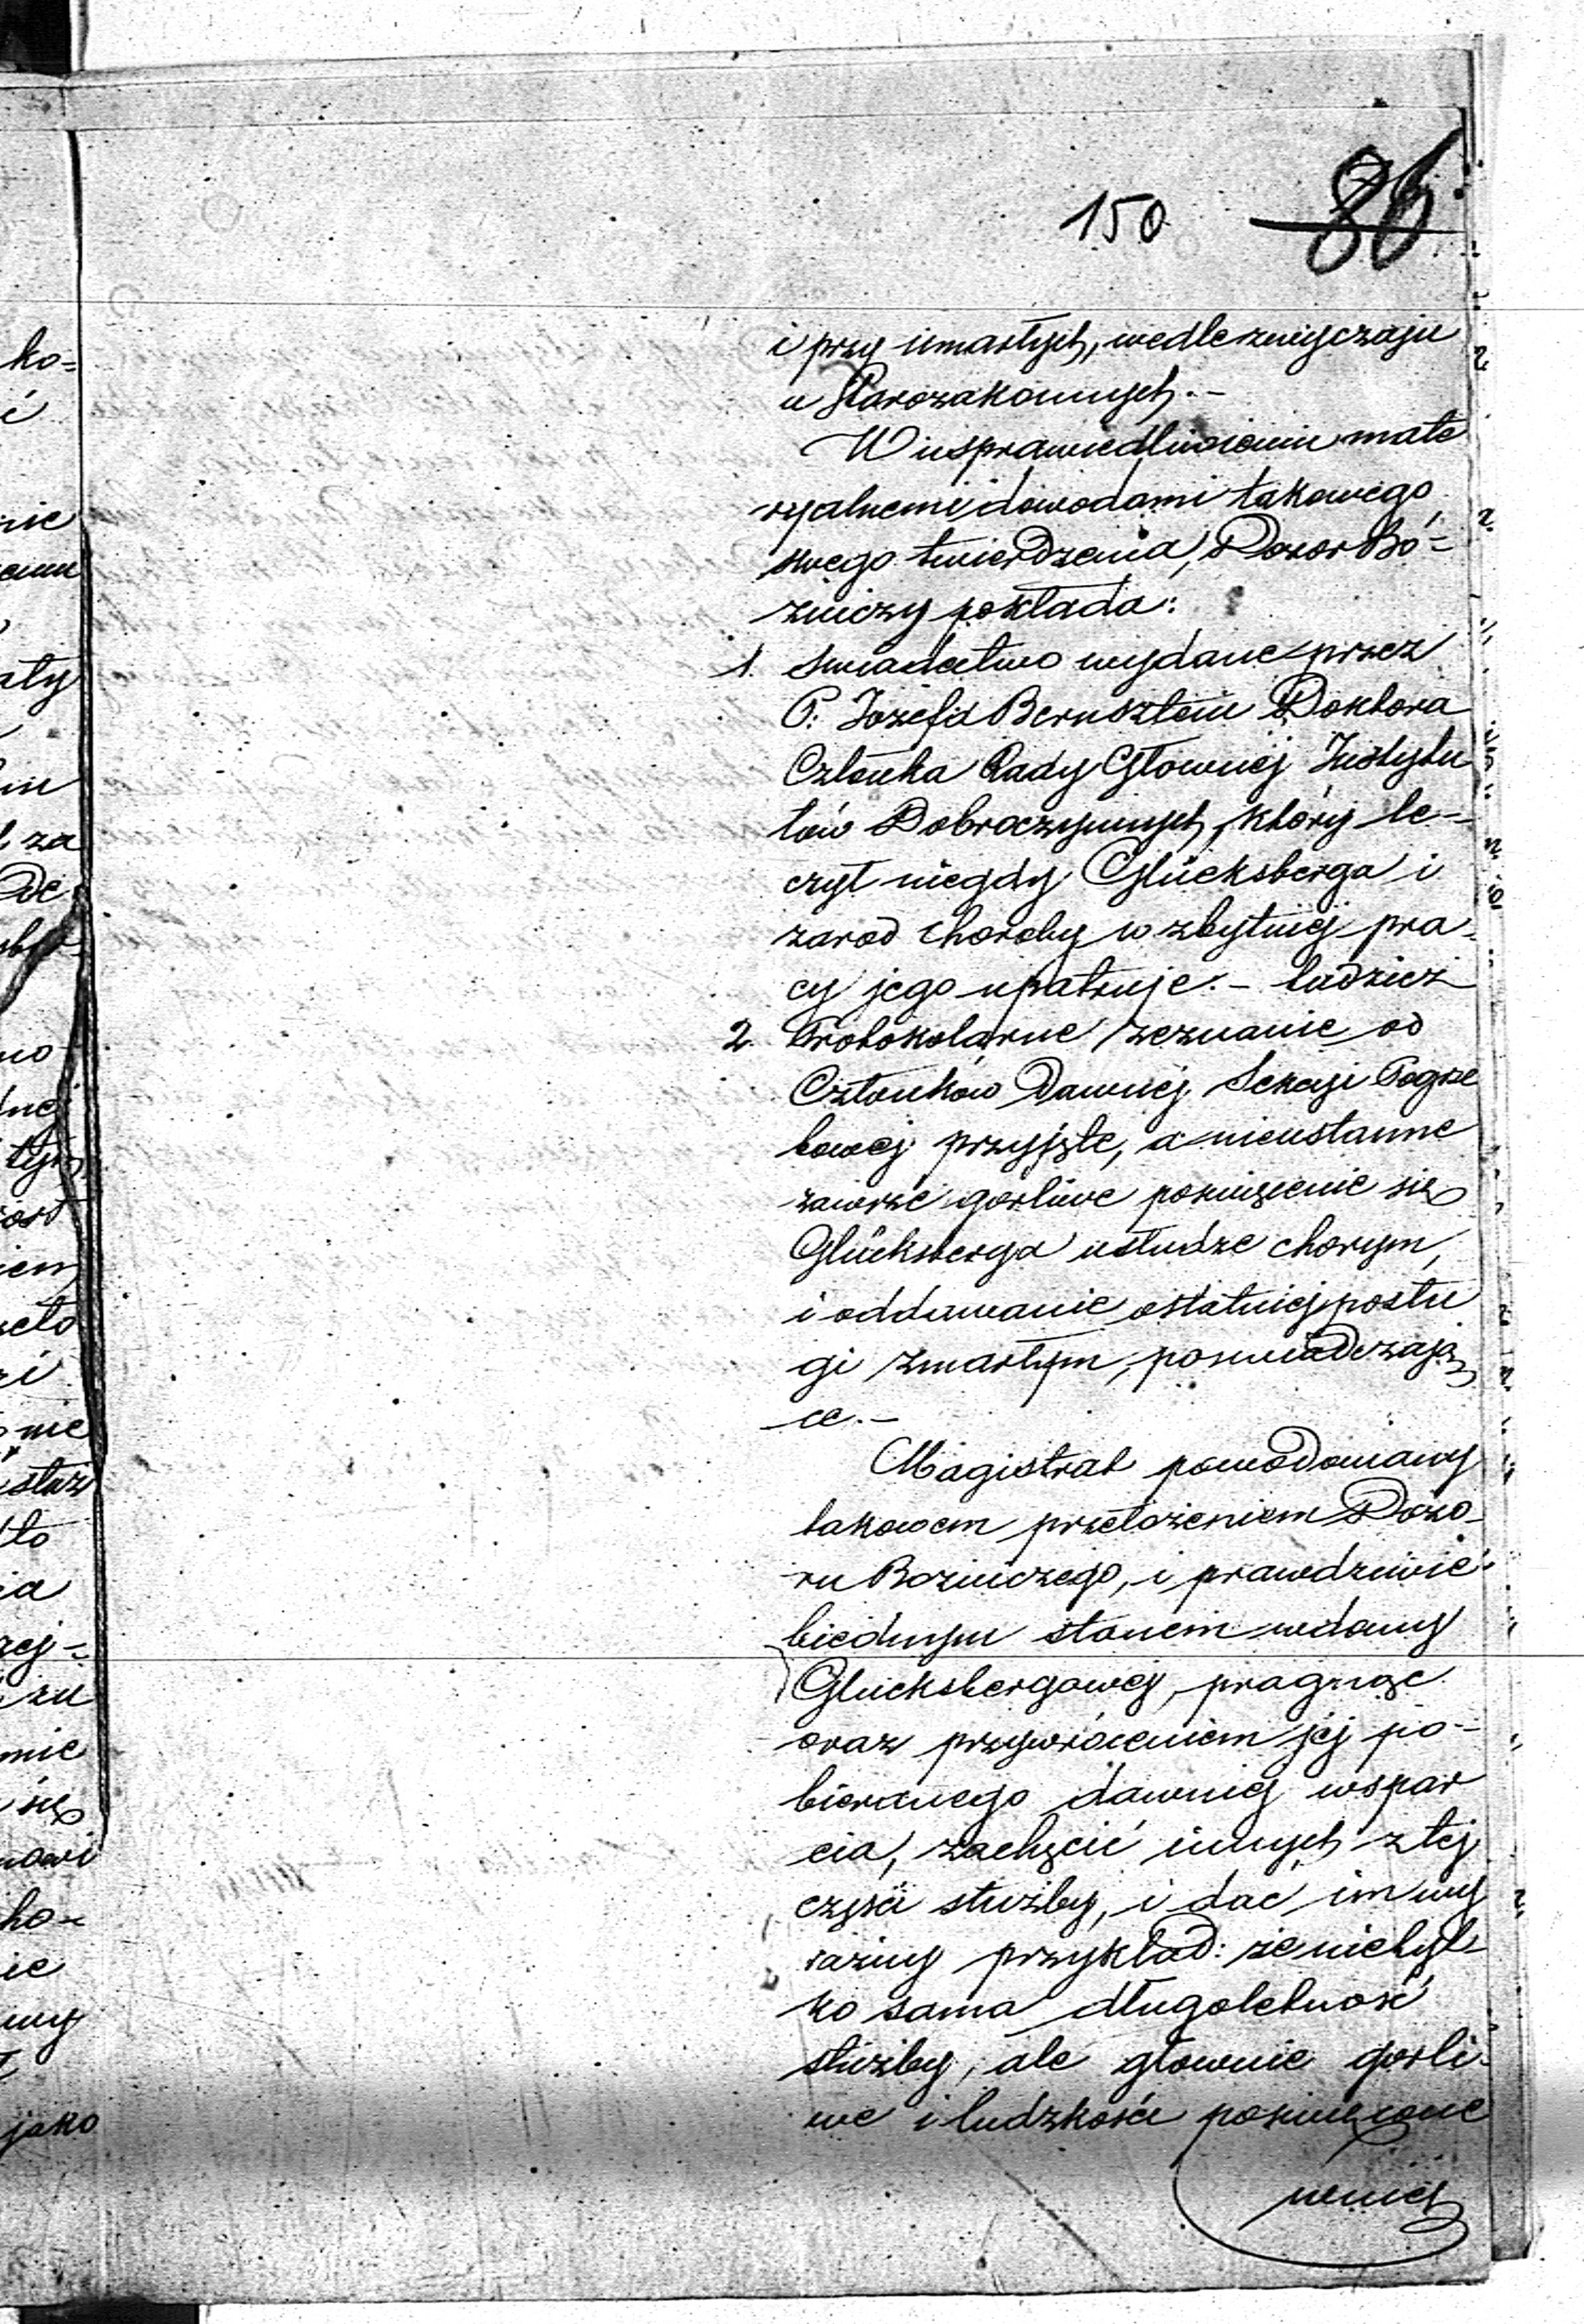 150 86
i przy umarłych, wedle zwyczaju
u Starozakonnych.-
W usprawiedliwieniu mate
ryalnemi dowodami takowego
swego twierdzenia, Dozor Bó-
zniczy pokłada:
1. Swiadectwo wydane przez
P: Jozefa Bernsztein Doktora
Członka Rady Głownéj Instytu
tów Dobroczynnych, który le-
czył niegdy Glücksberga i
zarod choroby w zbytniéj pra-
cy jego upatruje.- tudzież
2. Protokolarne zeznanie od
Członków Dawnéj Sekcyi Pogrze
bowéj przyjęte, a nieustanne
zawsze gorliwe poswięcenie się
Glücksberga usłudze chorym,
i oddawanie ostatniéj posłu
gi zmarłym, poswiadczają
ce.-
Magistrat powodowany
takowem przełożeniem Dozo-
ru Bozniczego, i prawdziwie
biednym stanem wdowy
Glücksbergowéj, pragnąc
oraz przywróceniem jéj po-
bieranego dawniéj wspar
cia, zachęcić innych z téj
części służby, i dać im wy
raźny przykład: że nietyl-
ko sama długoletność
służby, ale głownie gorli-
we i ludzkości poswięcone
w niéj
ko=
é
nie
aty
in
za
no
téj
iem
nie
to
ia
zéj-
zu
mie
się
ho-
ie
wy
jako